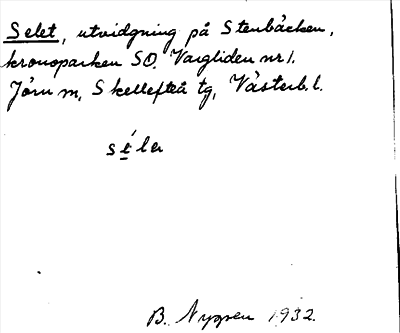 Selet, utvidgning på Stenbäcken,
kronoparken SO. Vargliden nr 1.
Jörn m, Skellefteå tg, Västerb. l.
séler
B. Nygren 1932.